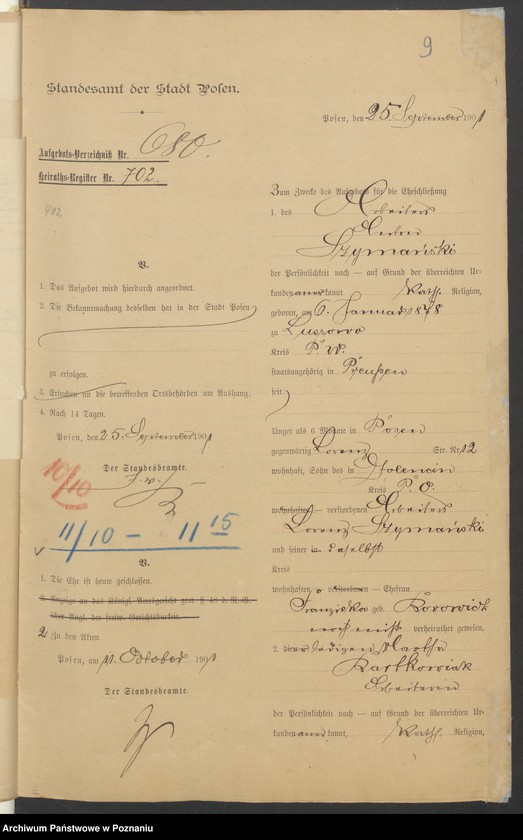 9
Standesamt der Stadt Posen.
Posen, den 25. September 1901
Aufgebots-Verzeichniß Nr. 680.
Heiraths-Register Nr. 702.
902
V.
1. Das Aufgebot wird hierdurch angeordnet.
2. Die Bekanntmachung desselben hat in der Stadt Posen
zu erfolgen.
3. Ersuchen an die betreffenden Ortsbehörden um Aushang.
4. Nach 14 Tagen.
Posen, den 25. September 1901
Der Standesbeamte.
J. V.
10/10
11/10 – 11 15
V.
1. Die Ehe ist heute geschlossen.
2. Anzeige an das Königl. Amtsgericht gem. § 48 d. R.-G.
über Angl. der freiw. Gerichtsbarkeit.
2 Zu den Akten.
Posen, am 11. Oktober 1901
Der Standesbeamte.
Zum Zwecke des Aufgebots für die Eheschließung
1. des Arbeiters
Szymański
der Persönlichkeit nach — auf Grund der überreichten Ur-
kunden anerkannt Kath. Religion,
geboren, am 6. Januar 1878
zu Lussowo
Kreis P. W.
staatsangehörig in Preußen
seit
länger als 6 Monate in Posen
gegenwärtig Lorenz Str. Nr. 12
wohnhaft, Sohn des in
Kreis P. O.
wohnhaften — verstorbenen Arbeiters
Lorenz Szymański
und seiner in daselbst
Kreis
wohnhaften — verstorbenen — Ehefrau
Franziska geb.
noch nicht verheirathet gewesen.
2. die ledigen Martha
Bartkowiak
Arbeiterin
der Persönlichkeit nach — auf Grund der überreichten Ur-
kunden anerkannt, Kath. Religion,
Archiwum Państwowe w Poznaniu
szukajwarchiwach.gov.pl